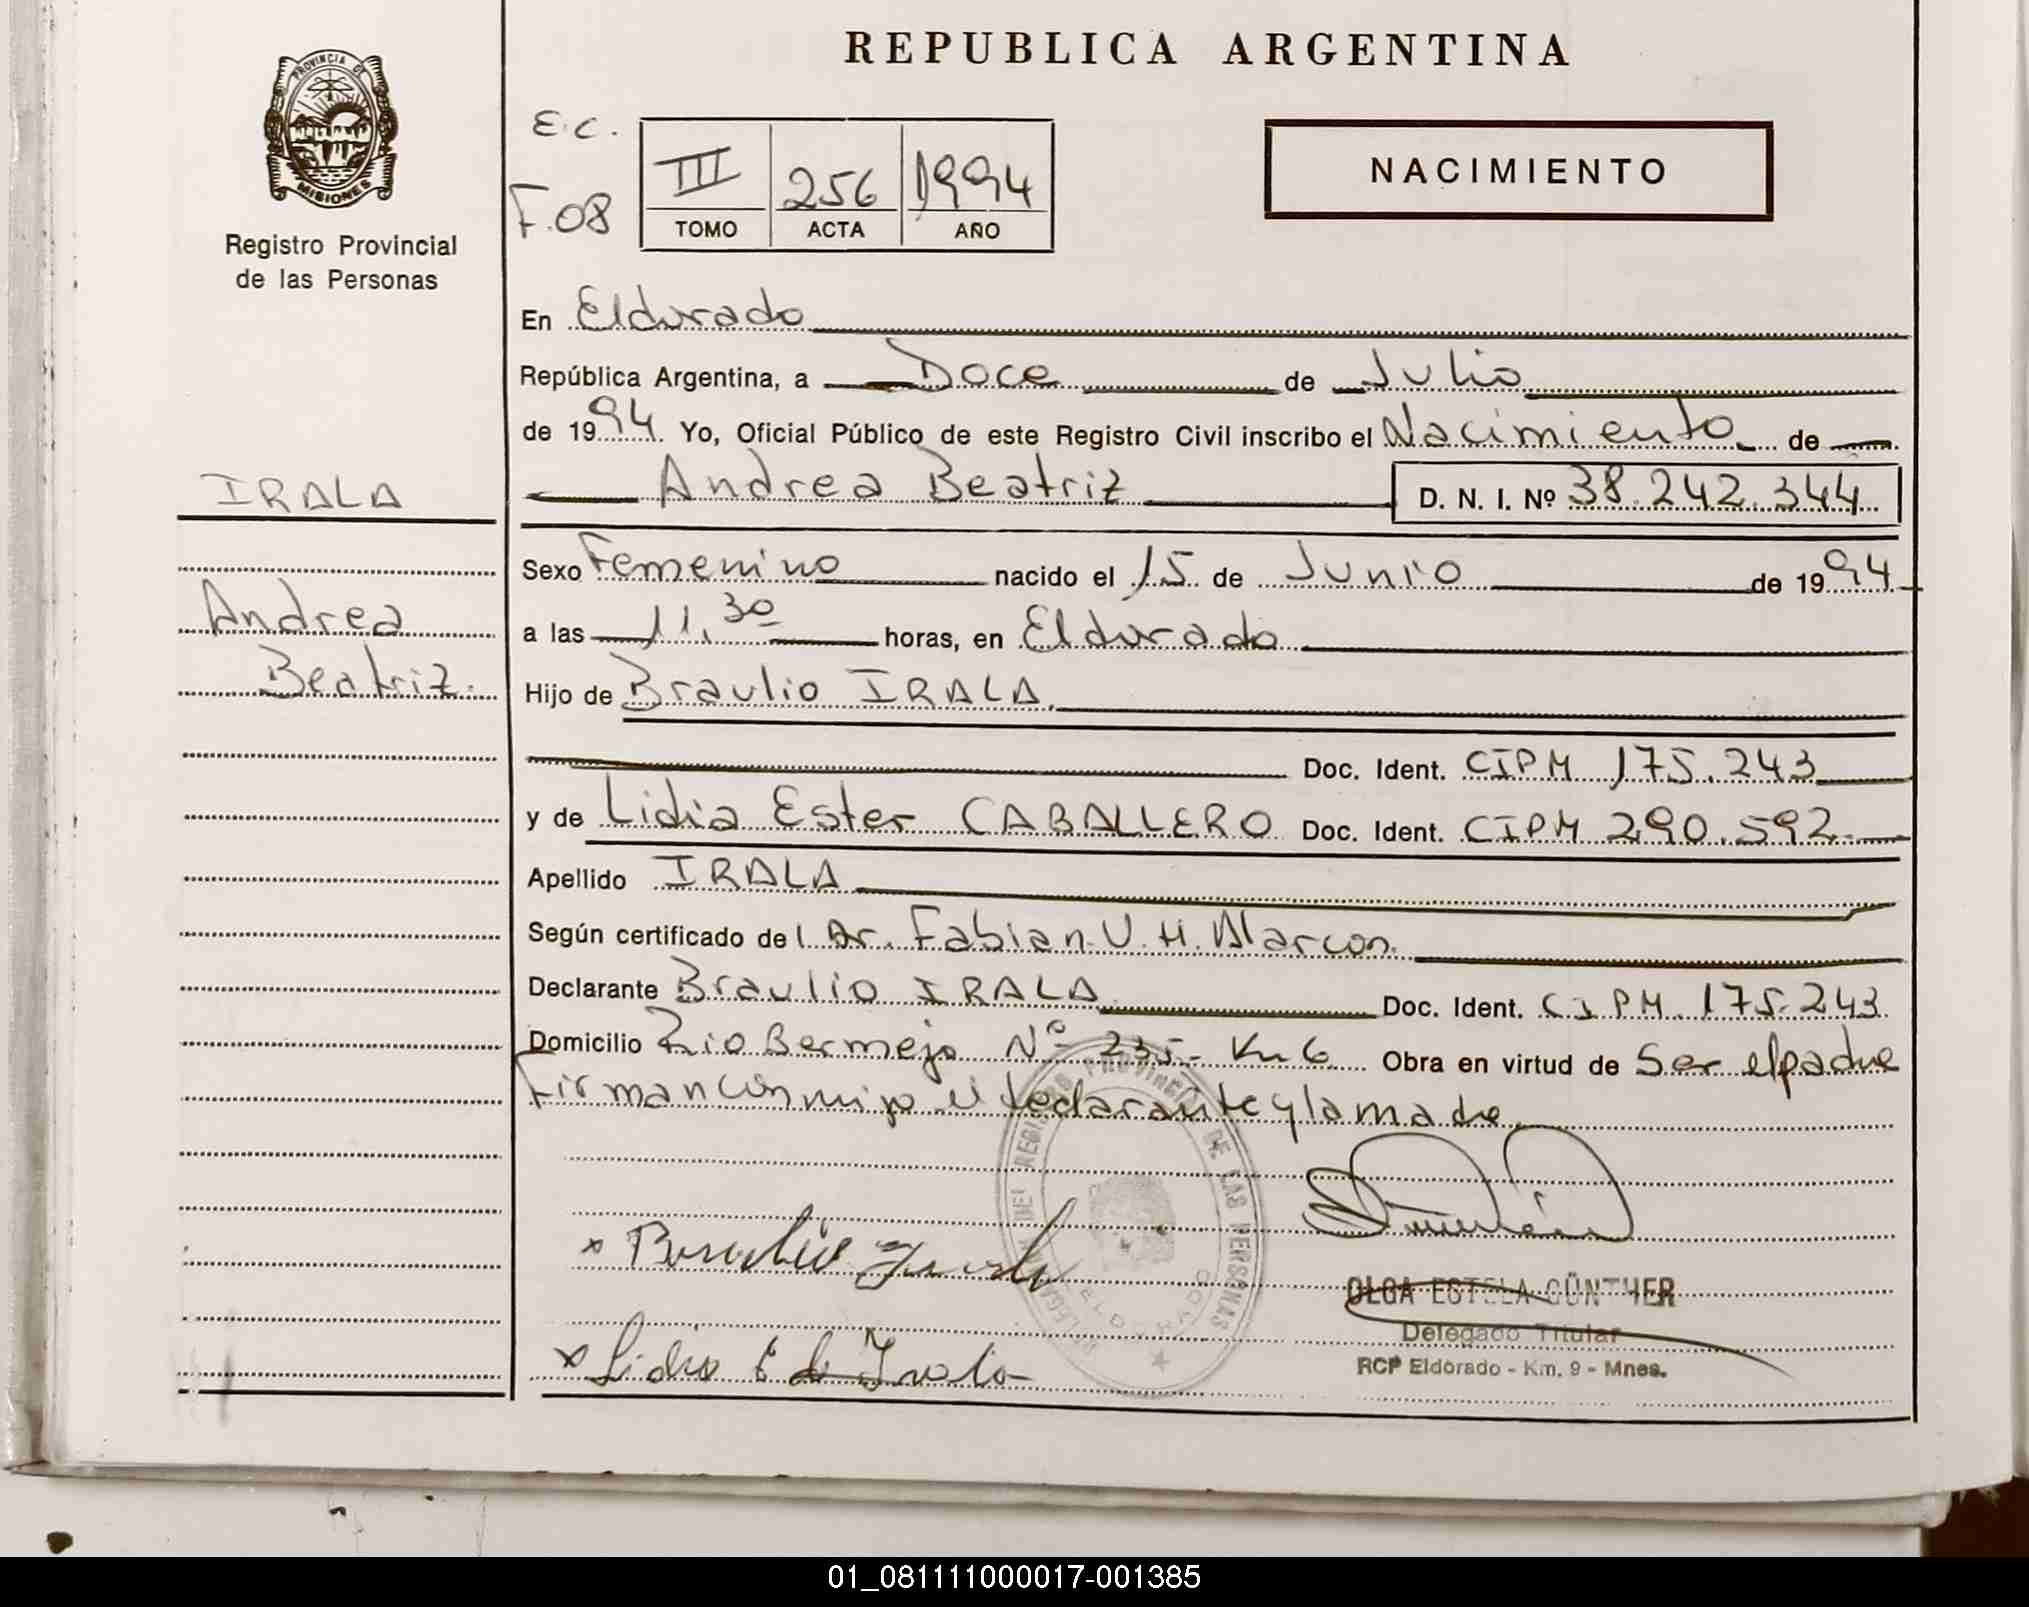 REPUBLICA ARGENTINA
PROVINCIA DE
MISIONES
Registro Provincial
de las Personas
E.C.
F.08
III 256 1994
TOMO ACTA AÑO
NACIMIENTO
En Eldorado
República Argentina, a Doce de Julio
de 1994. Yo, Oficial Público de este Registro Civil inscribo el Nacimiento de
Andrea Beatriz D. N. I. Nº 38.242.344
IRALA
Andrea
Beatriz.
Sexo Femenino nacido el 15 de Junio de 1994
a las 11,30 horas, en Eldorado
Hijo de Braulio IRALA
Doc. Ident. CIPM 175.243
y de Lidia Ester CABALLERO Doc. Ident. CIPM 290.592
Apellido IRALA
Según certificado del Dr. Fabian U. H. Alarcon.
Declarante Braulio IRALA Doc. Ident. CIPM. 175.243
Domicilio Rio Bermejo Nº 235- Km 6 Obra en virtud de Ser el padre
Firman conmigo el declarante y la madre
DEL REGISTRO PROVINCIAL DE LAS PERSONAS
ELDORADO
x Braulio Irala
x Lidia E de Irala
OLGA ESTELA GÜNTHER
Delegado Titular
RCP Eldorado - Km. 9 - Mnes.
01_081111000017-001385